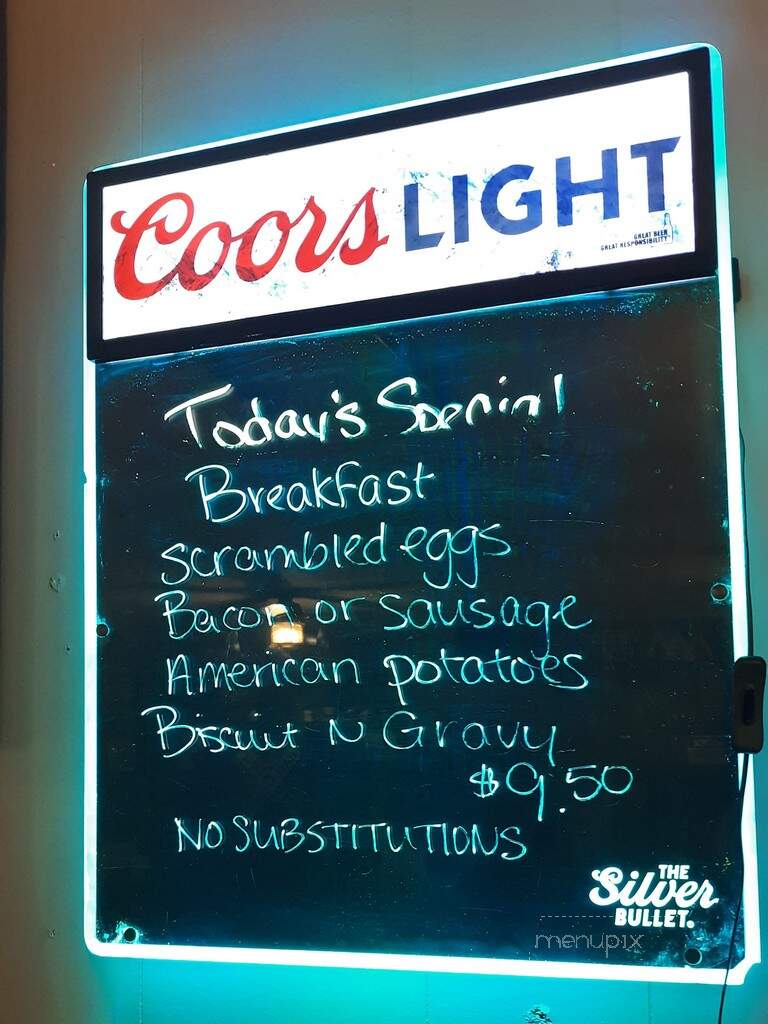 Coors LIGHT
GREAT BEER
GREAT RESPONSIBILITY
Today's Special
Breakfast
scrambled eggs
Bacon or sausage
American potatoes
Biscuit N Gravy
$9.50
NO SUBSTITUTIONS
THE
Silver
BULLET.
menupix